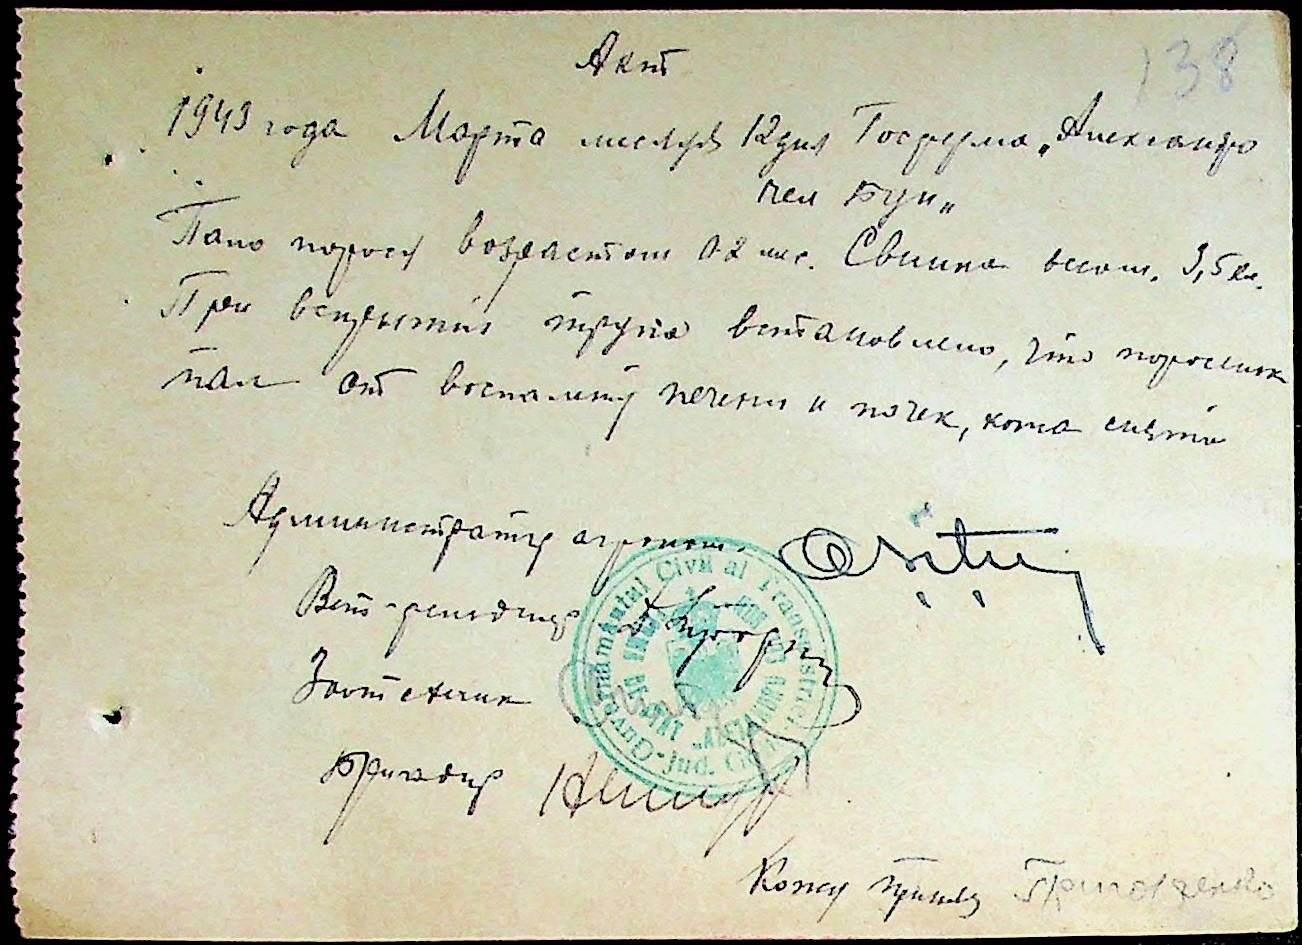 138
Акт
1943 года Марта месяця 12 дня Госферма „Александро
чел Бун„
Пало порося возрастом 1-2 мес. Свинка весом. 3,5 кл.
При вскрытия трупа встановлено, что поросенок
пал от воспаления печени и почек, кожа снята
Администратор агроном.
Вет-фельдшер
Зоотехник
Бригадир
Guvernământul Civil al Transnistriei
Jud.
Кожу принял